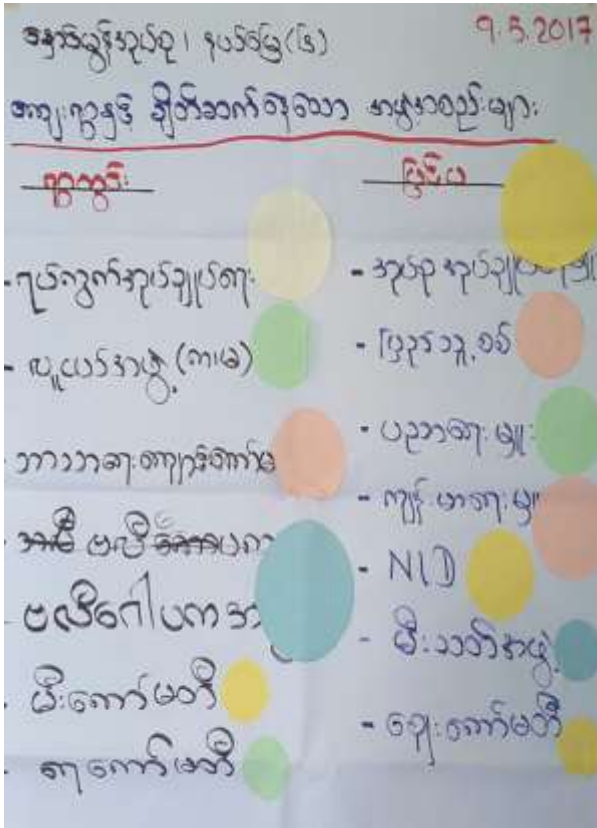 9.5.2017
ကျေးရွာနှင့် ချိတ်ဆက်နေသော အဖွဲ့အစည်းများ
ရွာတွင်း
- ရပ်ကွက်အုပ်ချုပ်ရေး
- လူငယ်အဖွဲ့ (ကျ၊မ)
- ဘာသာရေး
- ဗလီ
ဗလီဂေါပက
- မီးကော်မတီ
- ရေကော်မတီ
ပြင်ပ
- အုပ်စု အုပ်ချုပ်ရေးမှူး
- ပြည်သူ့စစ်
- ပညာရေးမှူး
- ကျန်းမာရေးမှူး
- NLD
- မီးသတ်အဖွဲ့
- ဈေးကော်မတီ